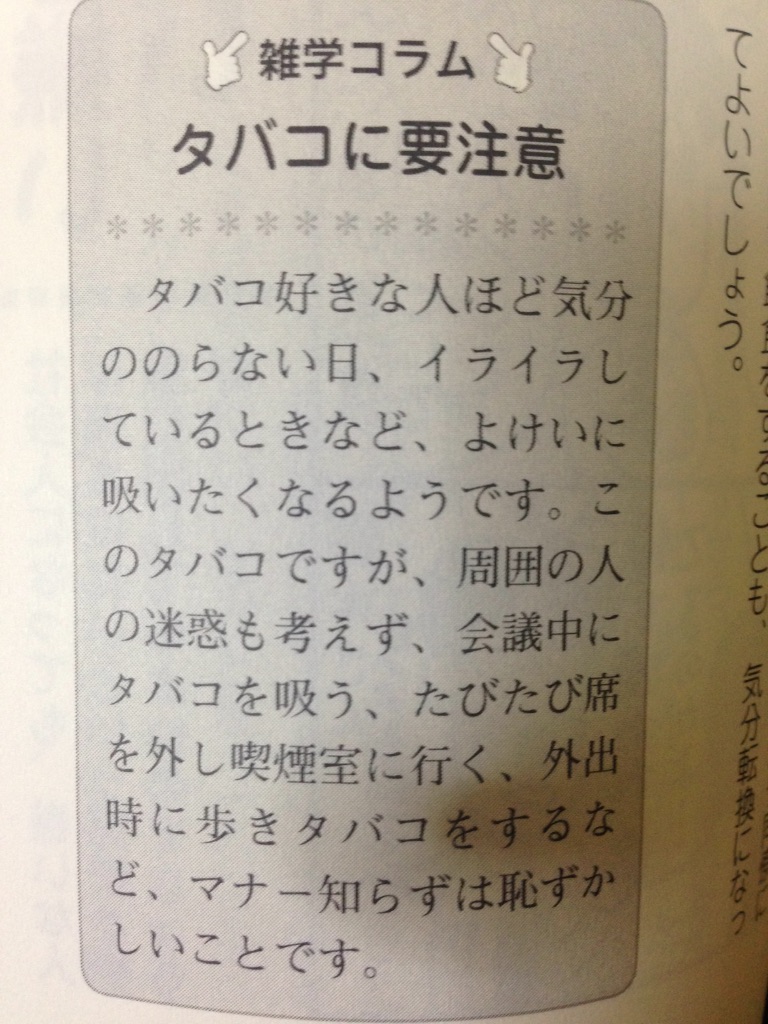 雑学コラム
タバコに要注意
＊＊＊＊＊＊＊＊＊＊＊＊＊＊
タバコ好きな人ほど気分
ののらない日、イライラし
ているときなど、よけいに
吸いたくなるようです。こ
のタバコですが、周囲の人
の迷惑も考えず、会議中に
タバコを吸う、たびたび席
を外し喫煙室に行く、外出
時に歩きタバコをするな
ど、マナー知らずは恥ずか
しいことです。
をすることも、気分転換になっ
てよいでしょう。